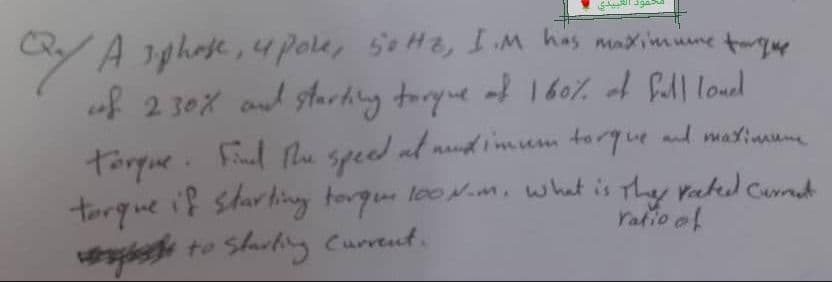 محمود العبيدي
Q/ A 3phase, 4 pole, 50 Hz, I.M has maximum torque
of 230% and starting torque of 160% of full load
torque. Find the speed at maximum torque and maximum
torque if starting torque 100 N.m. what is they rated Current
ratio of
to starting current.